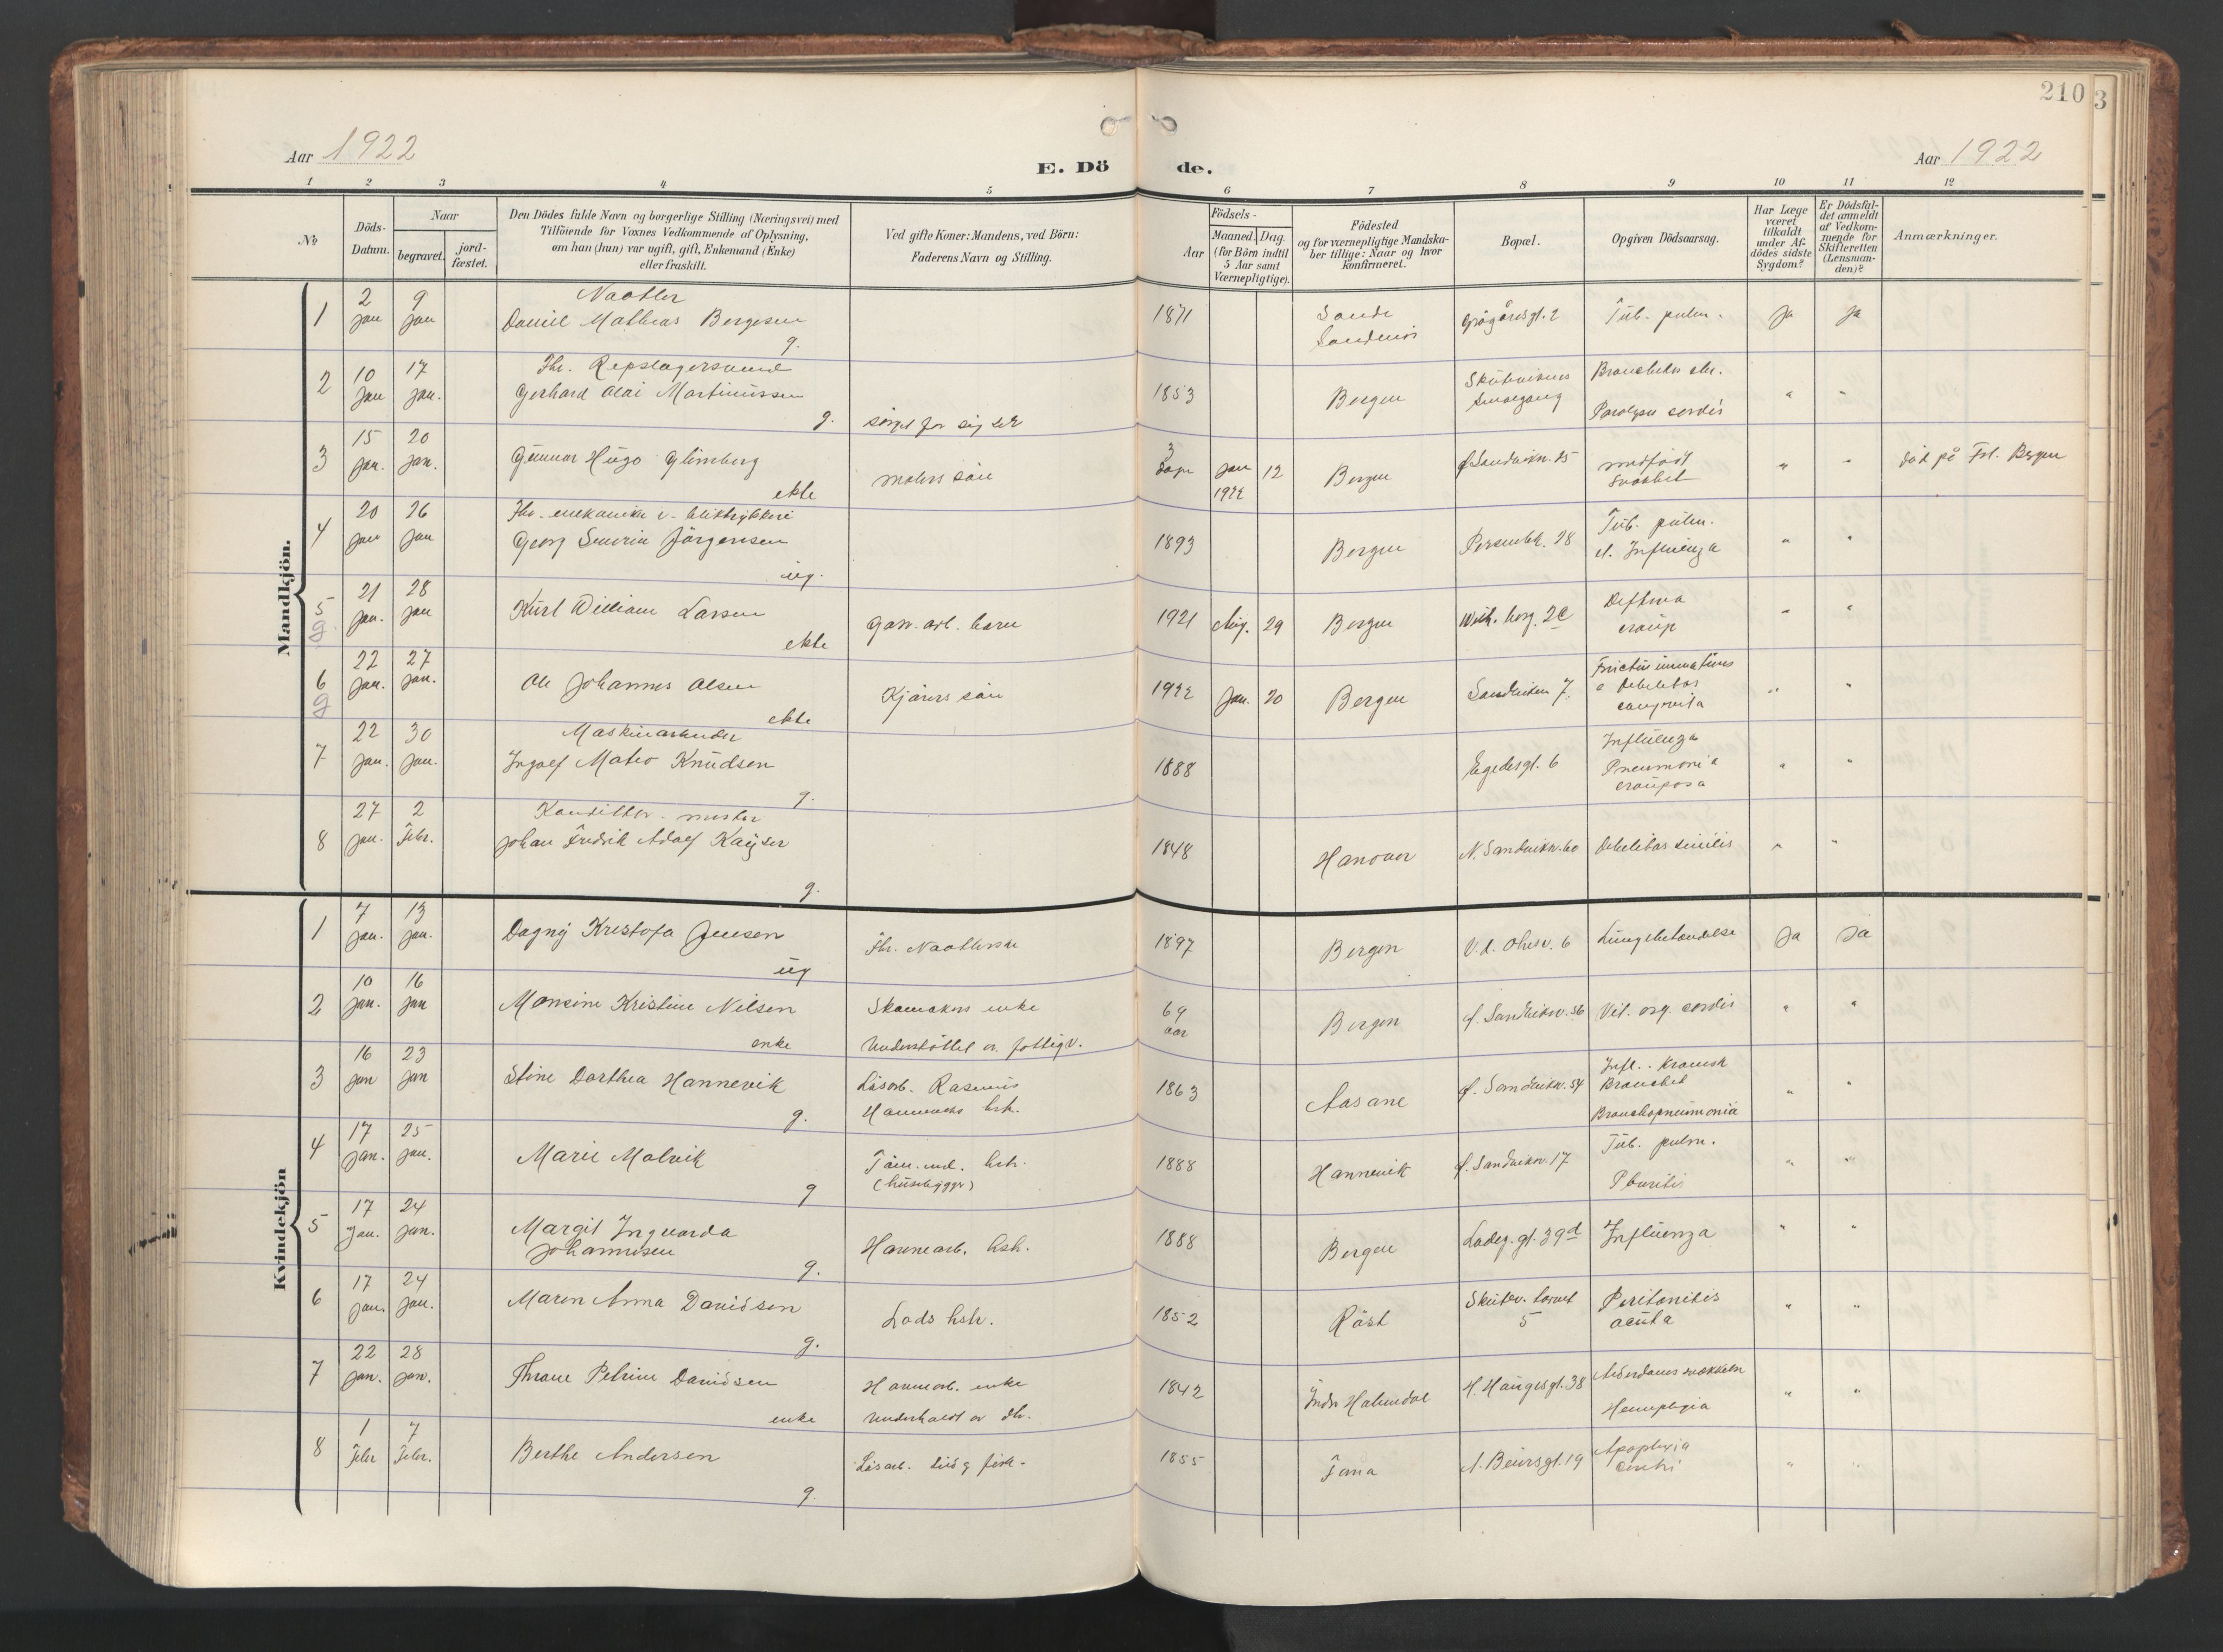 210
3
Aar 1922
E. Dö
de.
Aar 1922
1 2 3 4 5 6 7 8 9 10 11 12
No
Döds-
Datum.
Naar
begravet.
jord-
fæstet.
Den Dödes fulde Navn og borgerlige Stilling (Næringsvei) med
Tilföiende for Voxnes Vedkommende af Oplysning,
om han (hun) var ugift, gift, Enkemand (Enke)
eller fraskilt.
Ved gifte Koner: Mandens, ved Börn:
Faderens Navn og Stilling.
Födsels-
Aar
Maaned.
Dag.
(for Börn indtil
5 Aar samt
Værnepligtige).
Födested
og for værnepligtige Mandska-
ber tillige: Naar og hvor
konfirmeret.
Bopæl.
Opgiven Dödsaarsag.
Har Læge
været
tilkaldt
under Af-
dödes sidste
Sygdom?
Er Dödsfal-
det anmeldt
af Vedkom-
mende for
Skifteretten
(Lensman-
den)?
Anmærkninger.
Mandkjön.
1
2 Jan
9 Jan
Naatler
Daniel Mathias Bergesen
g.
1871
Sande
Gl. 2
Tub. pulm.
Ja
Ja
2
10 Jan
17 Jan.
Fhv. Repslagersvend
Gerhard Olai Martinussen
g.
sörget for sig selv
1853
Bergen
Skuteviken
Smalgang
Paralysis cordis
"
"
3
15 Jan.
20 Jan.
Gunnar Hugo Glimberg
ekte
malers sön
3
dage
Jan
1922
12
Bergen
Sandvikv. 25
medfödt
svakhet
"
"
död på Fst. Bergen
4
20 Jan
26 Jan
Georg Severin Jörgensen
ug.
1893
Bergen
28
Tub. pulm.
Influenza
"
"
5
g.
21 Jan.
28 Jan
Kurt William Larsen
ekte
garv. arb. barn
1921
Aug.
29
Bergen
2c
croup
"
"
6
g
22 Jan.
27 Jan.
Ole Johannes Olsen
ekte
Kjörers sön
1922
Jan.
20
Bergen
Sandviken 7.
congenita
"
"
7
22 Jan.
30 Jan.
Maskinarbeider
Ingolf Mateo Knudsen
g.
1888
Egedesgt. 6
Influenza
Pneumonia
crouposa
"
"
8
27 Jan.
2 Febr.
Konditter-mester
Johan Fredrik Adolf Kayser
g.
1848
Hanover
N. Sandvikv. 60
Debilitas senilis
"
"
Kvindekjön
1
7 Jan.
13 Jan.
Dagny Kristofa Jensen
ug
Fhv. Naatlers
1897
Bergen
6
Lungebetændelse
Ja
Ja
2
10 Jan.
16 Jan
Monsine Kristine Nilsen
enke
Skomakers enke
Understöttet av fattigv.
69
aar
Bergen
Sandvikv. 56
Vit. org. cordis
"
"
3
16 Jan
23 Jan
Stine Dorthea Hannevik
g.
Lösarb. Rasmus
Hanneviks hstr.
1863
Aasane
Sandvikv. 54
Infl. - Kronisk
Bronchit
Bronchopneumonia
"
"
4
17 Jan.
25 Jan.
Marie Molvik
g
Töm. md. hstr.
(husbygger)
1888
Hannevik
Sandvikv. 17
Tub. pulm.
Pleuritis
"
"
5
17 Jan.
24 Jan.
Margit Ingvarda
Johannesen
g.
Havnearb. hstr.
1888
Bergen
Ladeg. gt. 39d
Influenza
"
"
6
17 Jan.
24 Jan.
Maren Anna Davidsen
g.
Lods hstr.
1852
Röst
Skutev. torvet
5
Peritonitis
acuta
"
"
7
22 Jan.
28 Jan.
Throne Petrine Davidsen
enke
Havnearb. enke
Underholdt av dtr.
1842
Indr Holmedal
H. Haugesgt. 38
Alderdoms svækkelse
Hemiplegia
"
"
8
1 Febr
7 Febr.
Berthe Andersen
g.
Lösarb.
1855
Fana
A. Beiersgt. 19
Apoplexia
cerebri
"
"